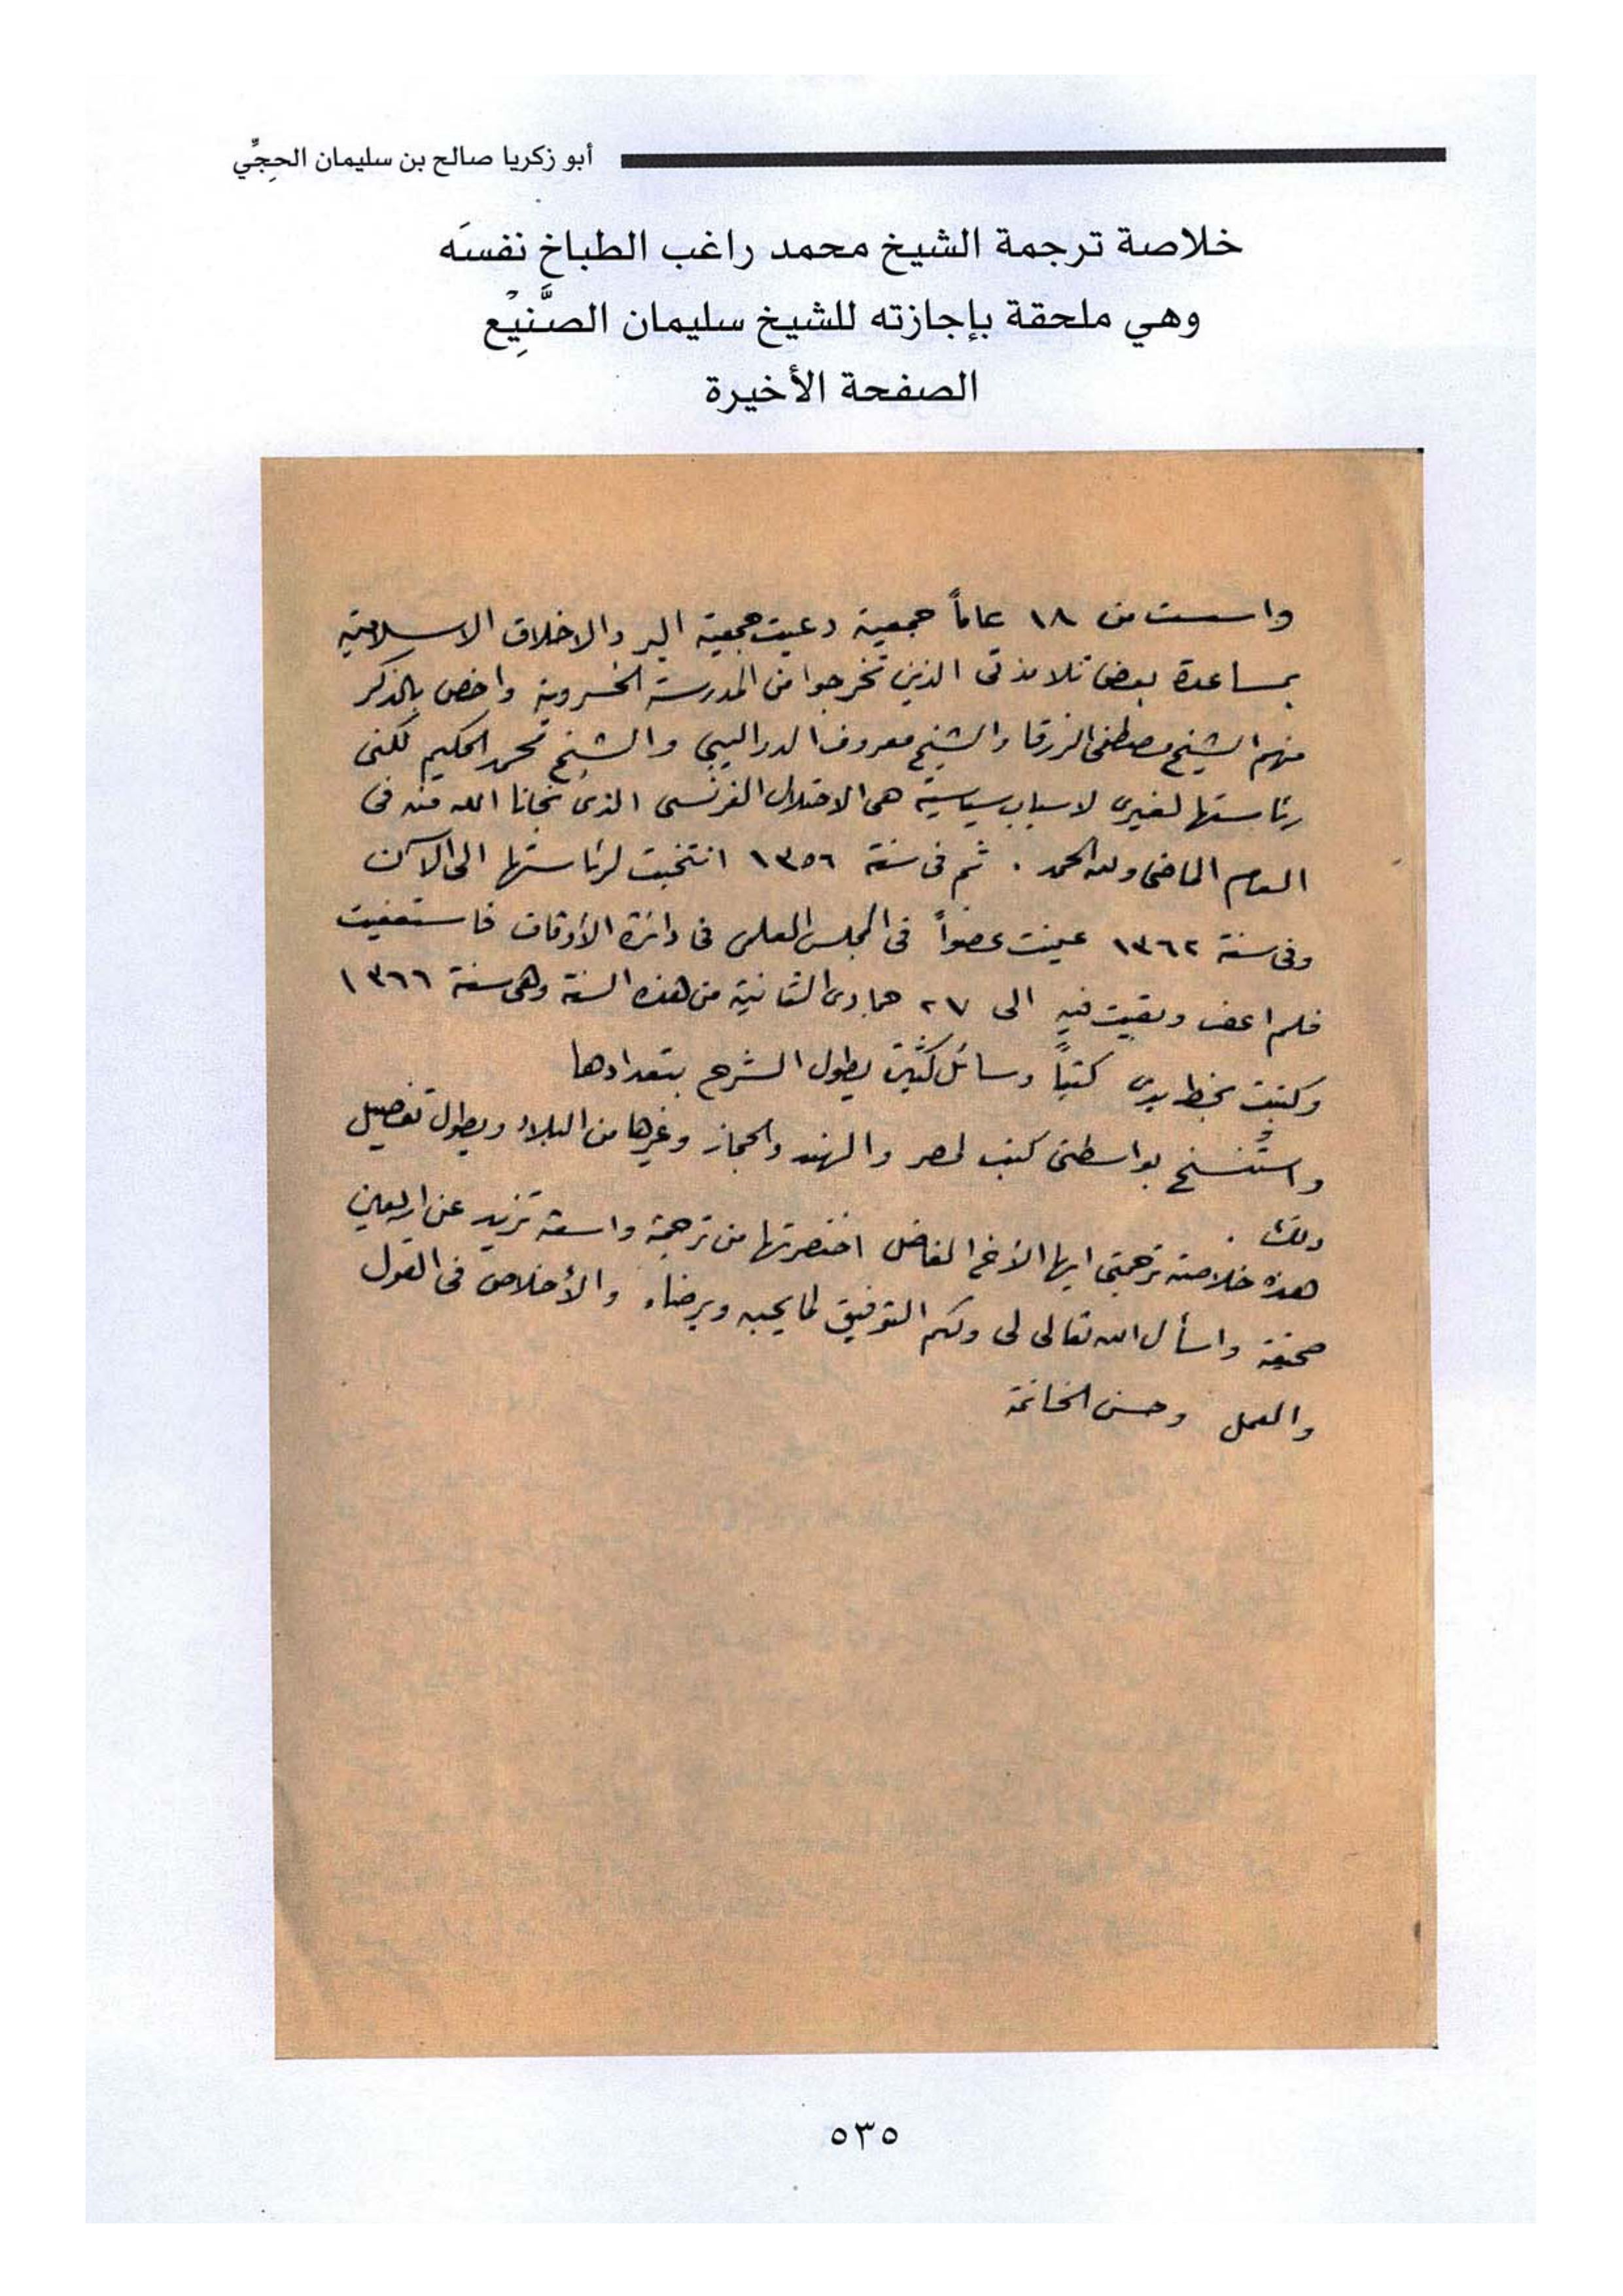 أبو زكريا صالح بن سليمان الحجِّي
خلاصة ترجمة الشيخ محمد راغب الطباخ نفسَه
وهي ملحقة بإجازته للشيخ سليمان الصَّنِيْع
الصفحة الأخيرة
واسست من ١٨ عاماً جمعية دعيت جمعية البر والاخلاق الاسلامية
بمساعدة بعض تلامذتى الذين تخرجوا من المدرسة الخسروية واخص بالذكر
منهم الشيخ مصطفى الزرقا والشيخ معروف الدواليبي والشيخ محمد الحكيم لكنى
رئاستها لغيرى لاسباب سياسية هى الاحتلال الفرنسى الذى نجانا الله منه فى
العام الماضى ولله الحمد . ثم فى سنة ١٣٥٦ انتخبت لرئاستها الى الآن
وفى سنة ١٣٦٢ عينت عضواً فى المجلس العلمى فى دائرة الأوقاف فاستعفيت
فلم اعف وبقيت فيه الى ٢٧ جمادى الثانية من هذه السنة وهى سنة ١٣٦٦
وكتبت بخط يدى كتباً ورسائل كثيرة يطول الشرح بتعدادها
واستُنسخ بواسطتى كتب لمصر والهند والحجاز وغيرها من البلاد ويطول تفصيل
ذلك .
هذه خلاصة ترجمتى ايها الأخ الفاضل اختصرتها من ترجمة واسعة تزيد عن اربعين
صحيفة واسأل الله تعالى لى ولكم التوفيق لما يحبه ويرضاه والأخلاص فى القول
والعمل وحسن الخاتمة
٥٣٥